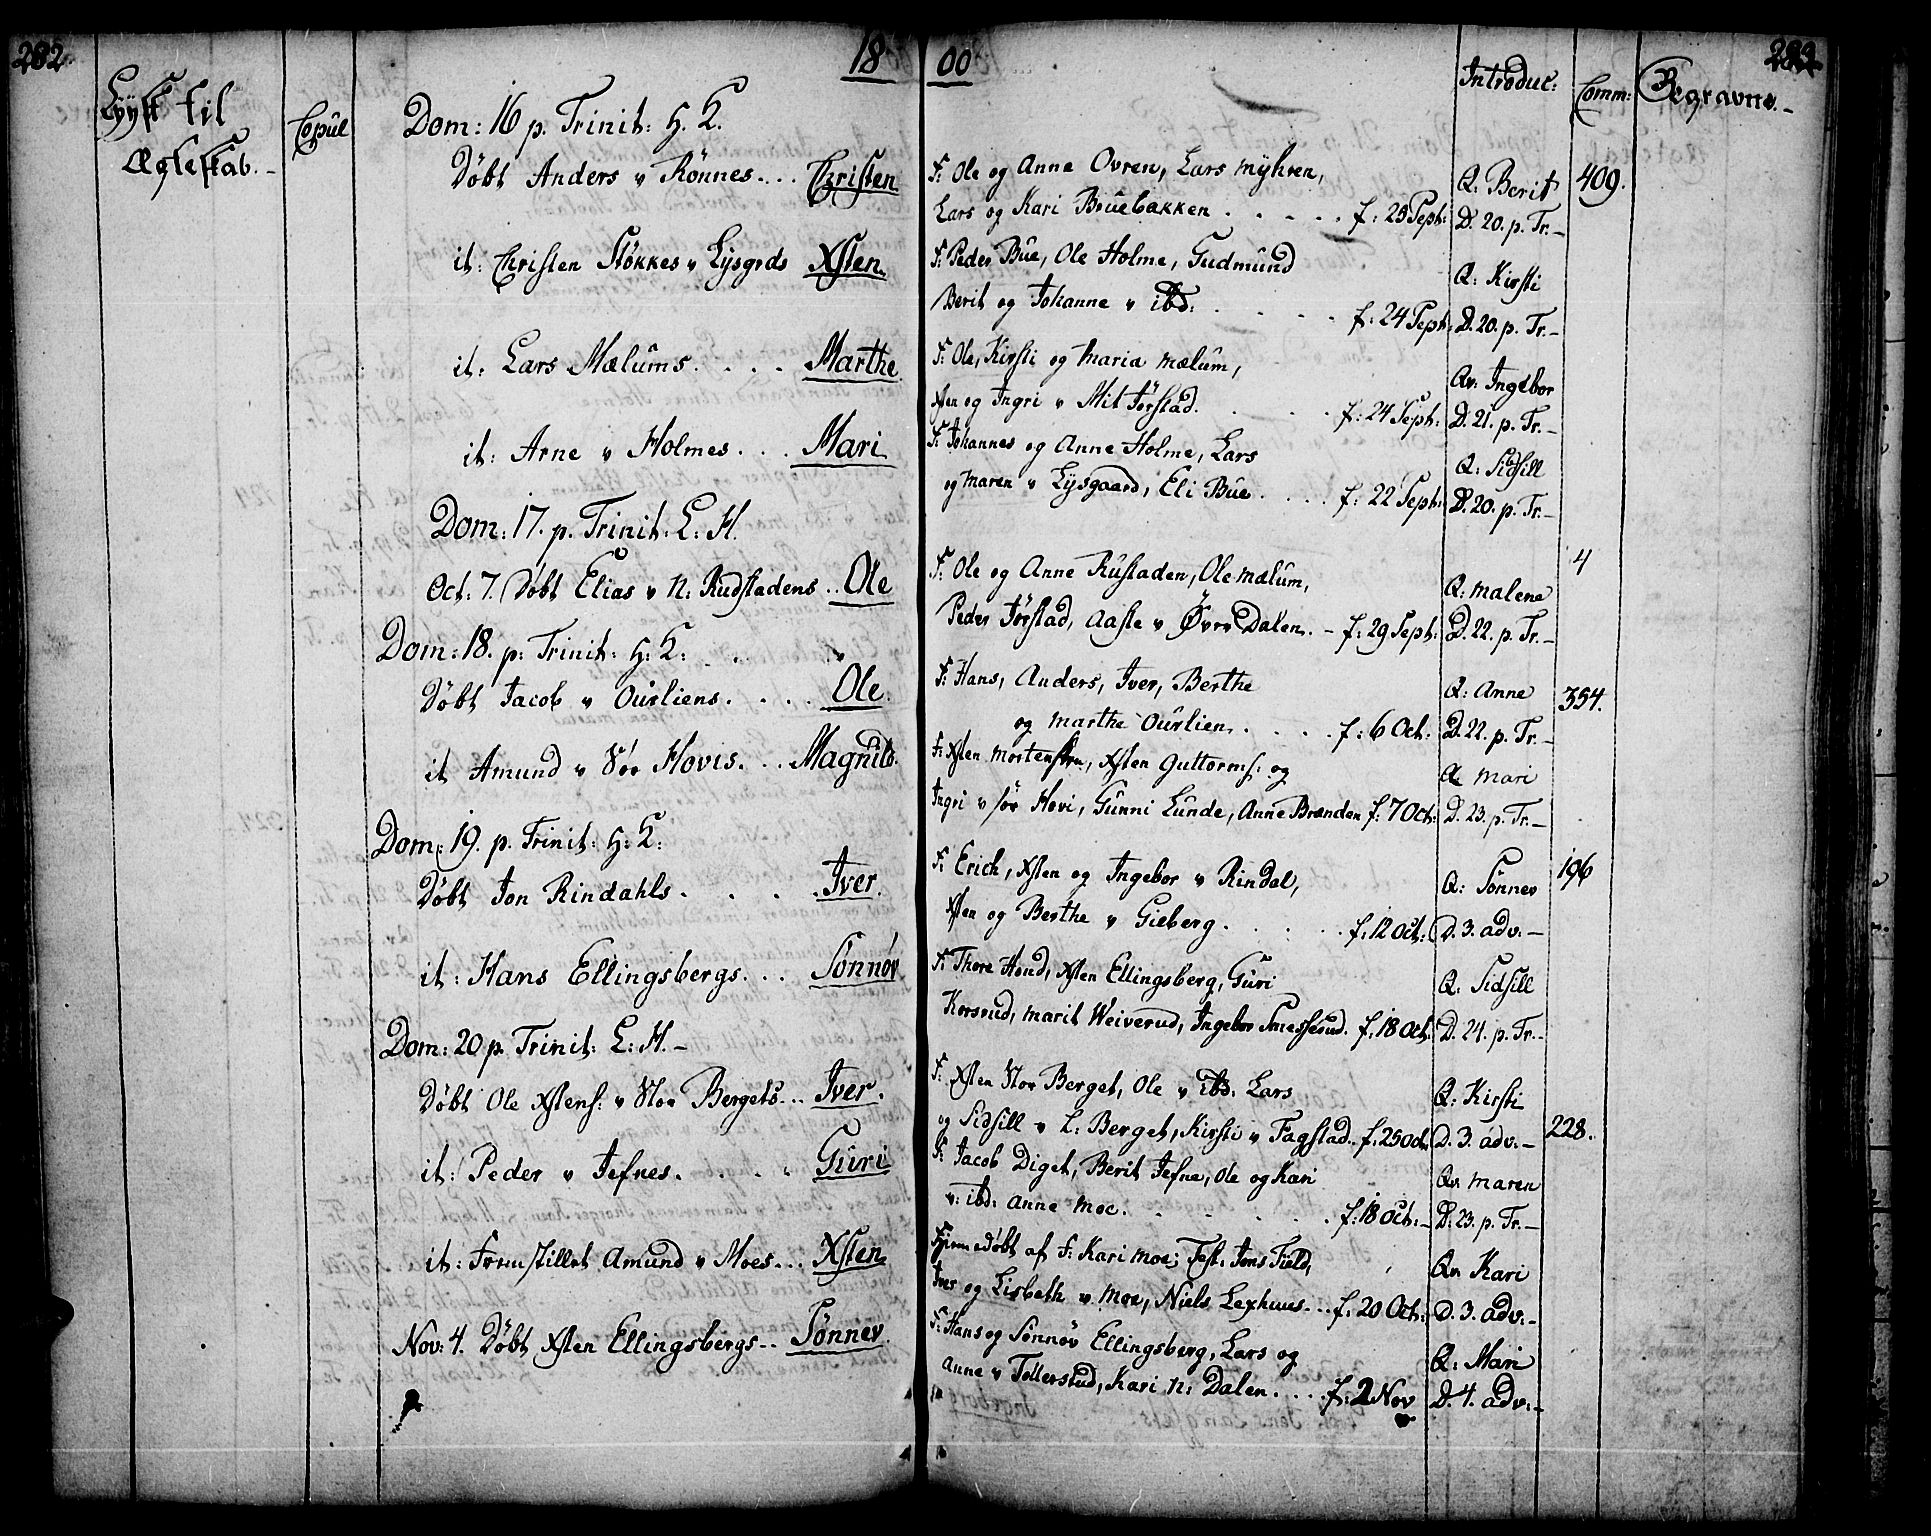 282
18 00
283
Lyyst til
Ægteskab.-
Copul
Introduc:
Comm:
Begravne.-
Dom: 16 p. Trinit: H. K.
Døbt Anders v Rönnes.... Christen
F: Ole og Anne Ovren, Lars Myhren,
Lars og Kari Bruebakken . . . . . f: 25 Sept:
Q: Berit
D. 20. p. Tr.-
409.
it: Christen Stökkes v Lysgrds Xsten.
F: Peder Bue, Ole Holme, Gudmund
Berit og Johanne v ibd: . . . . f: 24 Sept:
Q: Kirsti
D. 20. p. Tr.-
it: Lars Mælums. . . . . Marthe
F: Ole, Kirsti og Maria Mælum,
Xsten og Ingri v Mit Jörstad. . . . f: 24 Sept:
Qv: Ingebor
D. 21. p. Tr.-
it: Arne v Holmes. . . . Mari
F: Johannes og Anne Holme, Lars
og Maren v Lysgaard, Eli Bue. . . . f: 22 Sept:
Q: Sidsill
D. 20. p. Tr.-
Dom: 17. p. Trinit. L: H.
Oct. 7. Döbt Elias v N: Rudstadens .. Ole
F: Ole og Anne Rustaden, Ole Mælum,
Peder Jörstad, Aaste v Övre Dalen. - f: 29 Sept:
Q: Malene
D. 22. p. Tr.-
4
Dom: 18. p: Trinit: H: K:
Döbt Jacob v Ourliens. . . . . Ole
F: Hans, Anders, Iver, Berthe
og Marthe Ourlien. . . . . f: 6 Oct:
Q: Anne
D. 22. p. Tr.-
354.
it Amund v Hovis. . . Magnild.
F: Xsten Mortensen, Xsten Guttorms: og
Ingri v Hovi, Gunni Lunde, Anne Brænden f: 7 Oct:
Q: Mari
D. 23. p. Tr.-
Dom: 19. p. Trinit: H: K:
Döbt Jon Rindahls. . . . . Iver.
F: Erich, Xsten og Ingebor v Rindal,
Xsten og Berthe v Gieberg. . . . . f: 12 Oct:
Q: Sönnev
D. 3. adv:-
196
it: Hans Ellingsbergs. . . Sönnöv
F: Thore Hond, Xsten Ellingsberg, Guri
Korsrud, Marit Weiverud, Ingebor Smessrud. f: 18 Oct:
Q: Sidsill
D. 24. p. Tr.-
Dom: 20 p. Trinit: L: H.-
Döbt Ole Xstens: v Stor Bergets... Iver.
F: Xsten Stor Berget, Ole v ibd: Lars
og Sidsill v L: Berget, Kirsti v Fagstad.. f: 25 Oct:
Q: Kirsti
D. 3. adv:-
228.
it: Peder v Jefnes. . . . . Guri
F: Jacob Diget, Berit Jefne, Ole og Kari
v: ibd: Anne Moe. . . . . . . f: 18 Oct:-
Qv Maren
D. 23. p. Tr.-
it: Fremstillet Amund v Moes... Xsten
Hjemmedöbt af F: Kari Moe; Test: Jens Field,
Iver og Lisbeth v Moe, Niels Lexhuus... f: 20 Oct:
Qv Kari
D. 3. adv:-
Nov: 4. Döbt Xsten Ellingsbergs... Sönnev.
F: Hans og Sönnöv Ellingsberg, Lars og
Anne v Tollersrud, Kari N: Dalen. . . . f: 2 Nov
Q: Mari
D. 4. adv:-